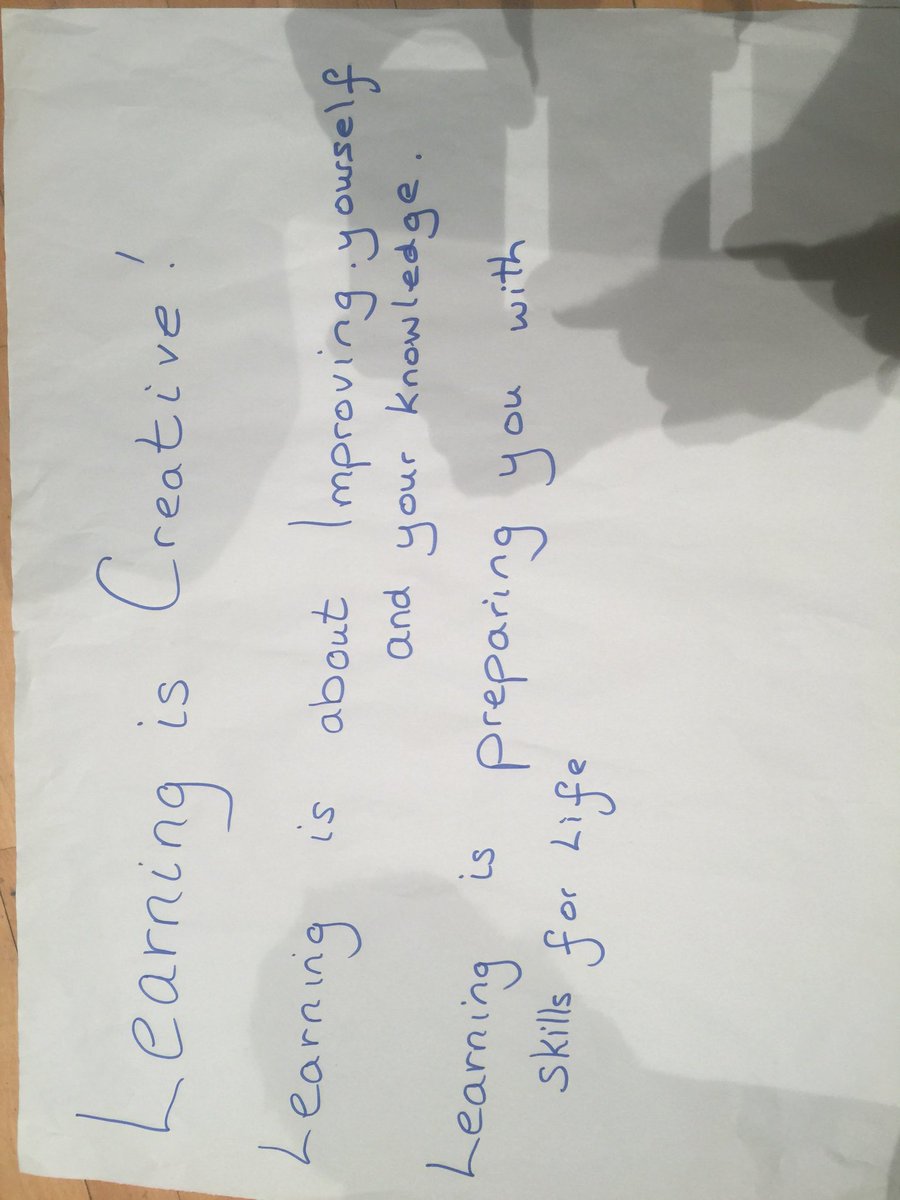 Learning is Creative!
Learning is about Improving yourself
and your knowledge.
Learning is preparing you with
skills for Life